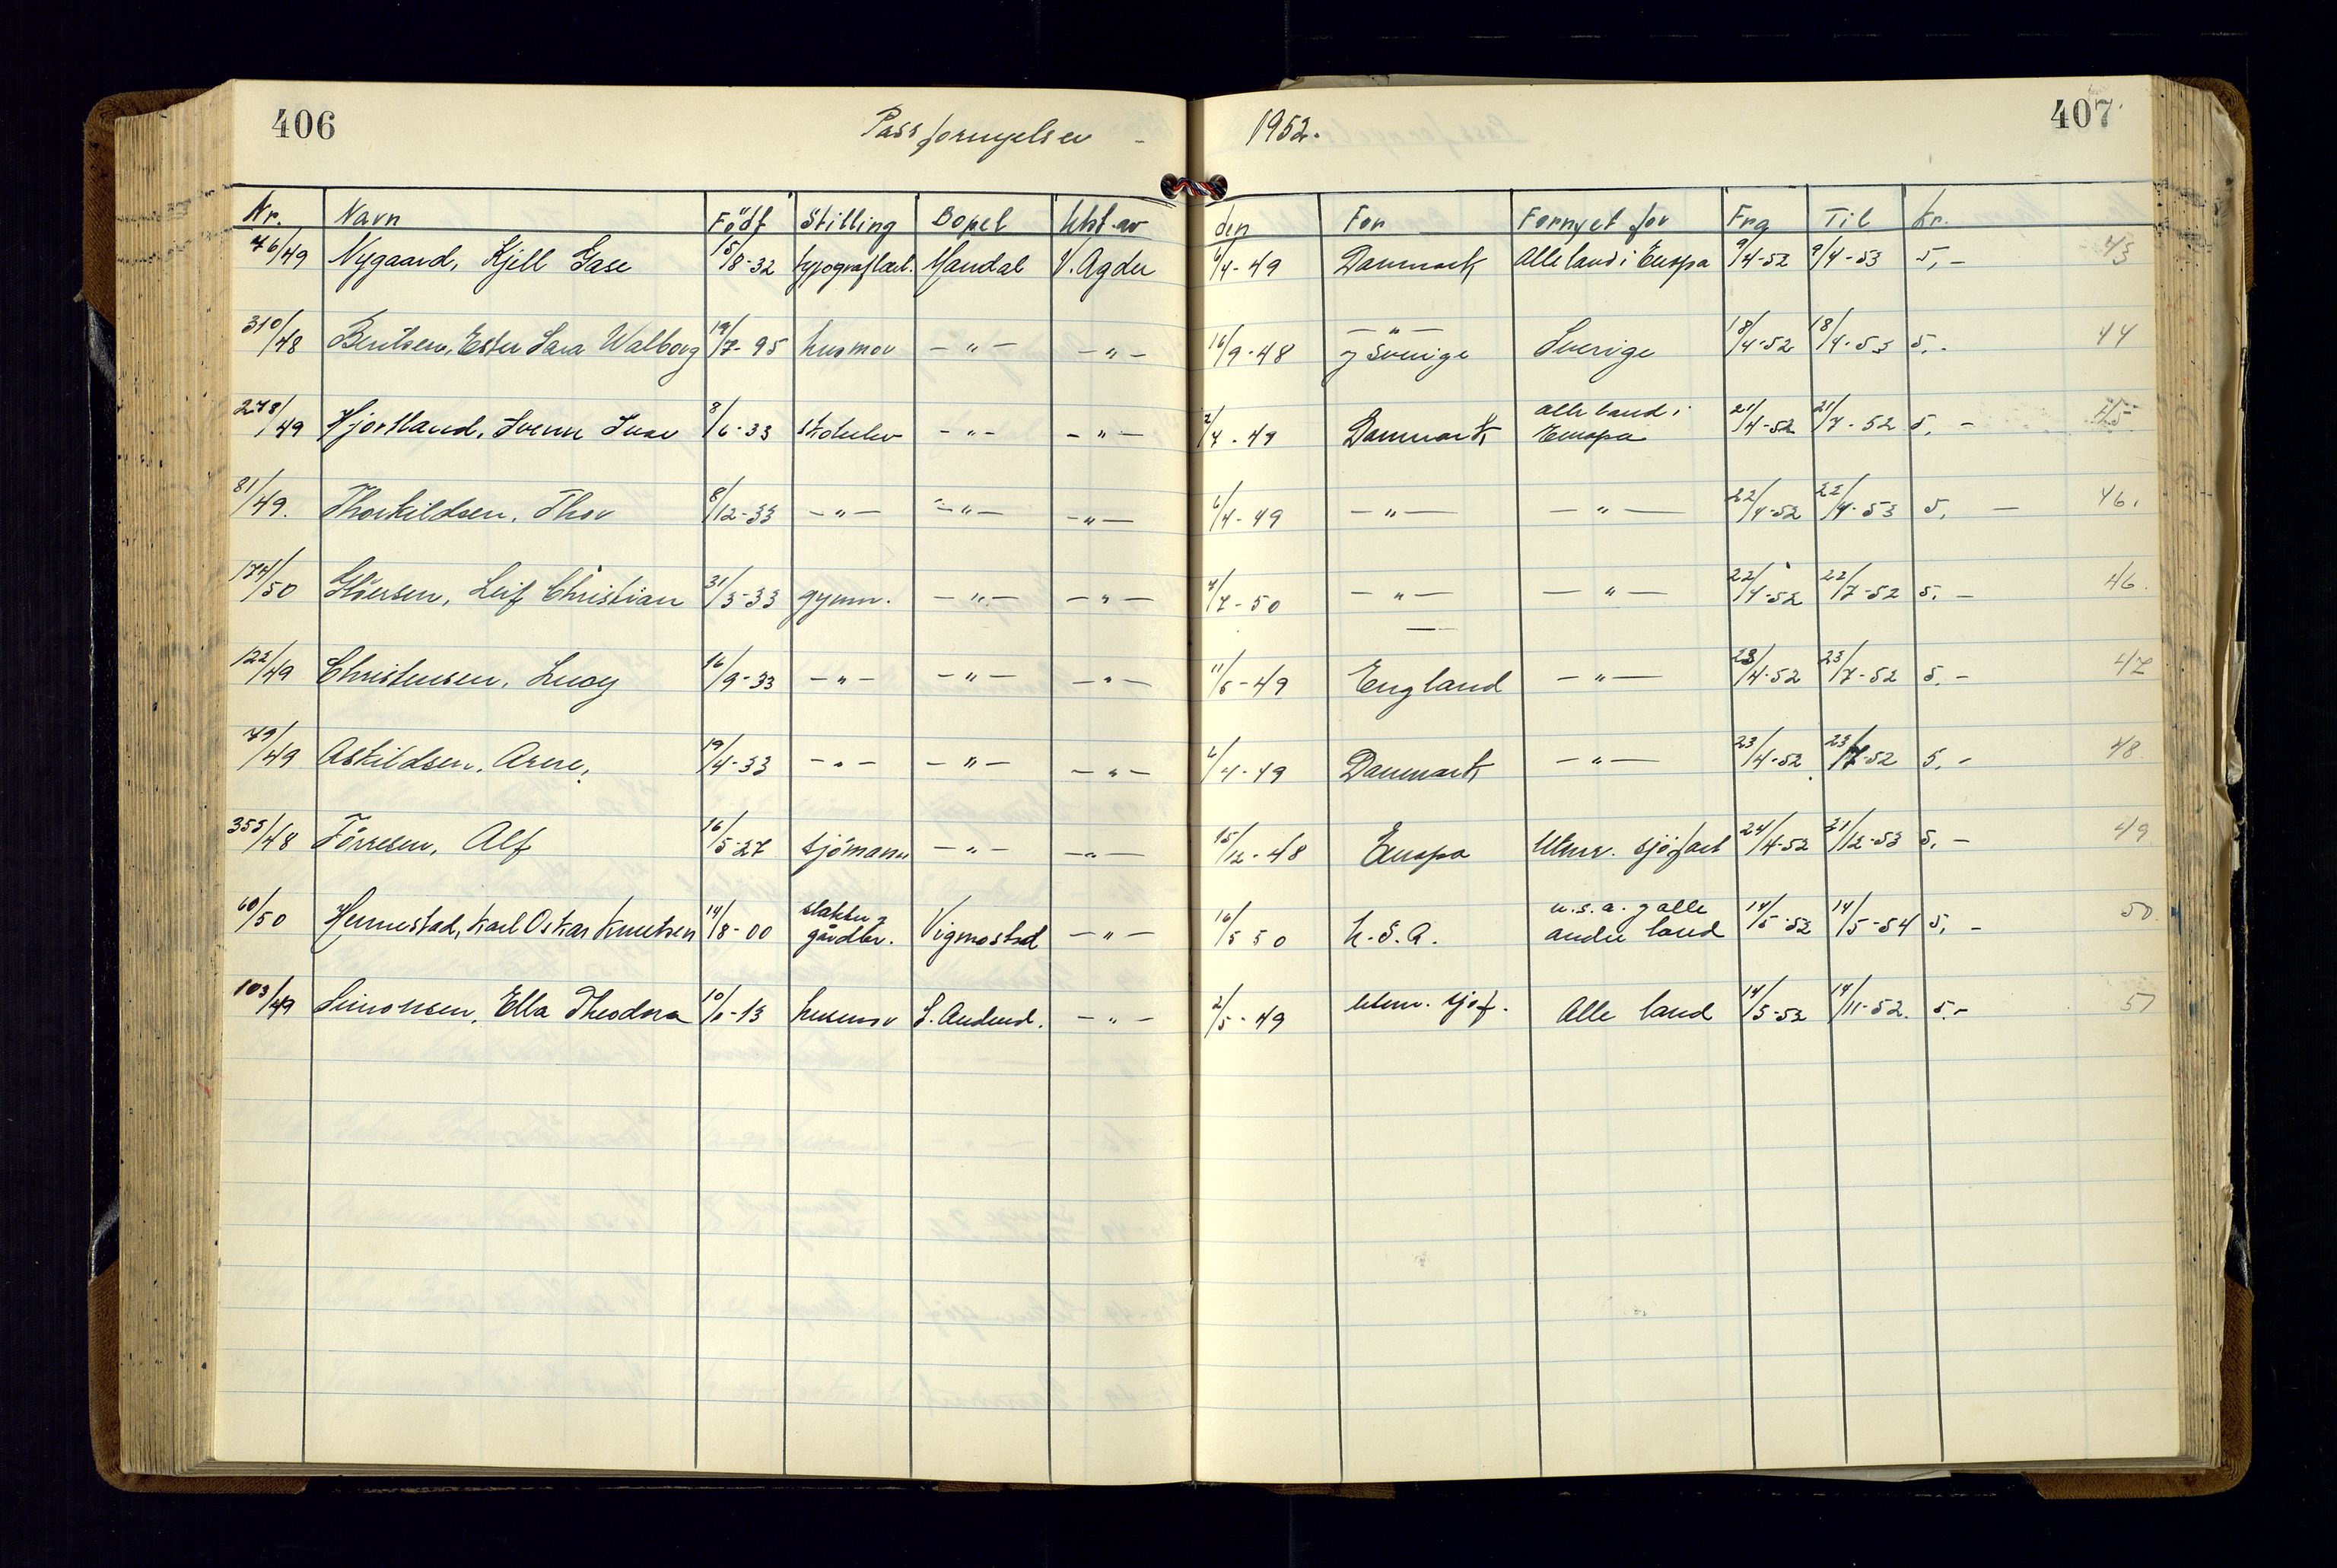 406 Passfornyelser - 1952. 407
Nr. Navn Född Stilling Bopel Utst. av den For Fornyet for Fra Til Kr.
76/49 Nygaard, Kjell Gase 15/8-32 typograflærl. Mandal V. Agder 6/4-49 Danmark Alle land i Europa 9/4-52 9/4-53 5,- 43
310/48 Bentsen, Ester Sara Walborg 19/7-95 husmor -"- -"- 16/9-48 -"- og Sverige Sverige 18/4-52 18/4-53 5.- 44
278/49 Hjortland, Svenn Ivar 8/6-33 skoleelev -"- -"- 2/7-49 Danmark alle land i Europa 21/4-52 21/7-52 5,- 45
81/49. Thorkildsen, Thor 8/12-33 -"- -"- -"- 6/4-49 -"- -"- 22/4-52 22/4-53 5,- 46.
174/50 Leif Christian 31/3-33 gymn. -"- -"- 4/7-50 -"- -"- 22/4-52 22/7-52 5,- 46.
122/49 Christensen, 16/9-33 -"- -"- -"- 11/5-49 England -"- 23/4-52 23/7-52 5.- 47
79/49 Askildsen, Arne, 19/4-33 -"- -"- -"- 6/4-49 Danmark -"- 23/4-52 23/7-52 5,- 48.
355/48 Törresen, Alf 16/5-27 sjömann -"- -"- 15/12-48 Europa Utenr. sjöfart 24/4-52 31/12-53 5,- 49
60/50 Hennestad, Karl Oskar Knutsen 14/8-00 slakter og gårdbr. Vigmostad -"- 16/5 50 U.S.A. u.s.a. og alle andre land 14/5-52 14/5-54 5,- 50.
103/49 Simonsen, Ella Theodora husmor S. Audned. -"- 2/5-49 Utenr. sjöf. Alle land 14/5-52 14/11-52. 5.- 51